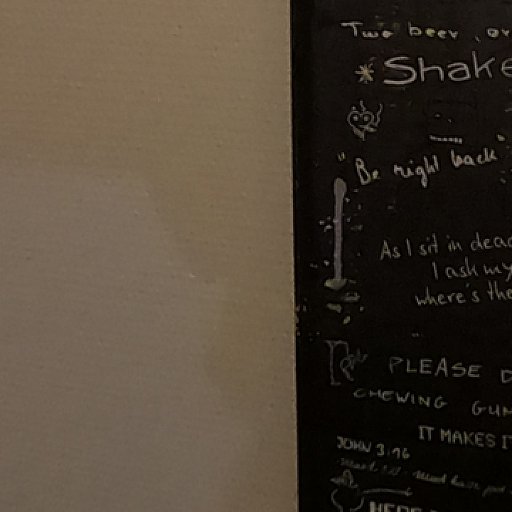 Two beer, or
* Shake
"Be right back"
As I sit in dead
I ask my
where's the
PLEASE D
CHEWING GUM
IT MAKES IT
JOHN 3:16
HERE